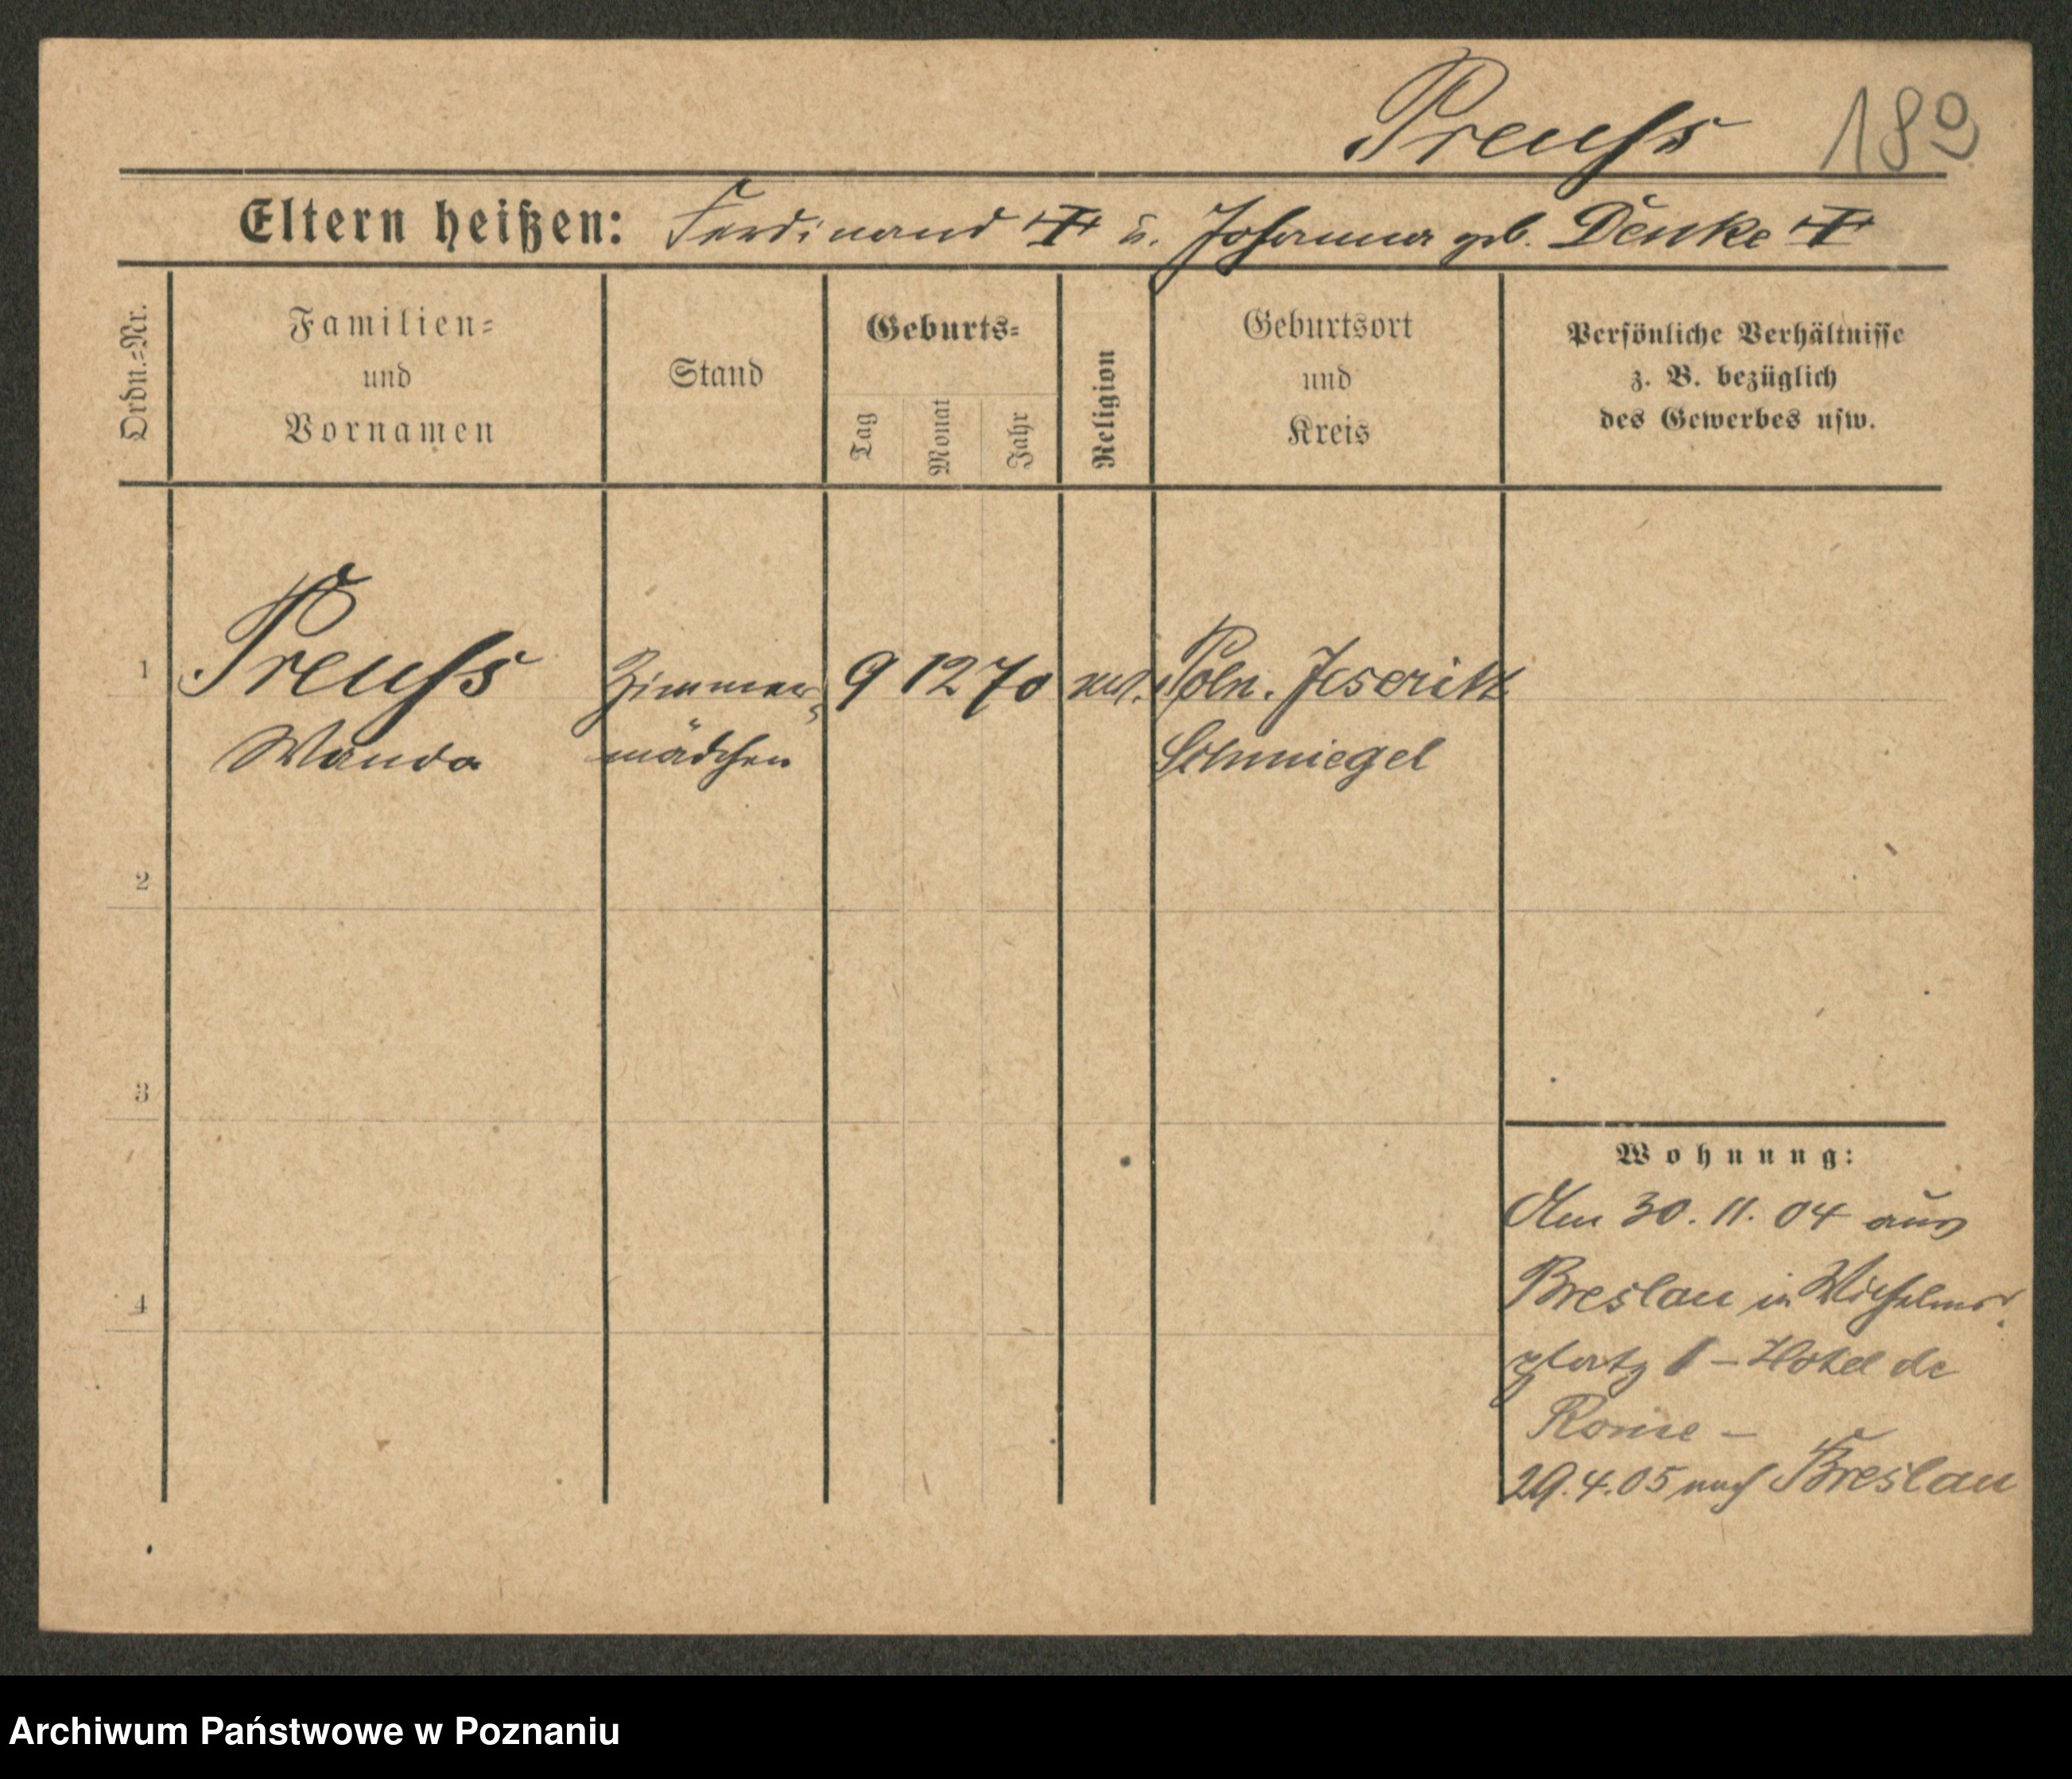 Preuß 189
Eltern heißen: Ferdinand † u. Johanna geb. Denke †
Ordn.=Nr.
Familien=
und
Vornamen
Stand
Geburts=
Tag
Monat
Jahr
Religion
Geburtsort
und
Kreis
Persönliche Verhältnisse
z. B. bezüglich
des Gewerbes usw.
1 Preuß Zimmer= 9 12 70 Poln. Jeseritz
Wanda mädchen Schmiegel
2
3
4
Wohnung:
Am 30. 11. 04 aus
Breslau in Wilhelms=
platz 1 – Hotel de
Rome –
29. 4. 05 nach Breslau
Archiwum Państwowe w Poznaniu